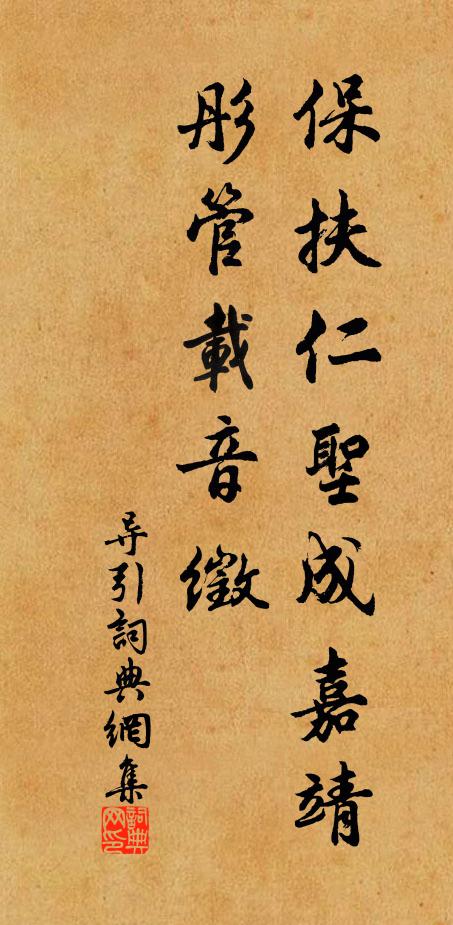 保扶仁聖成嘉靖
彤管載音徽
导引詞典網集
詞典
网印